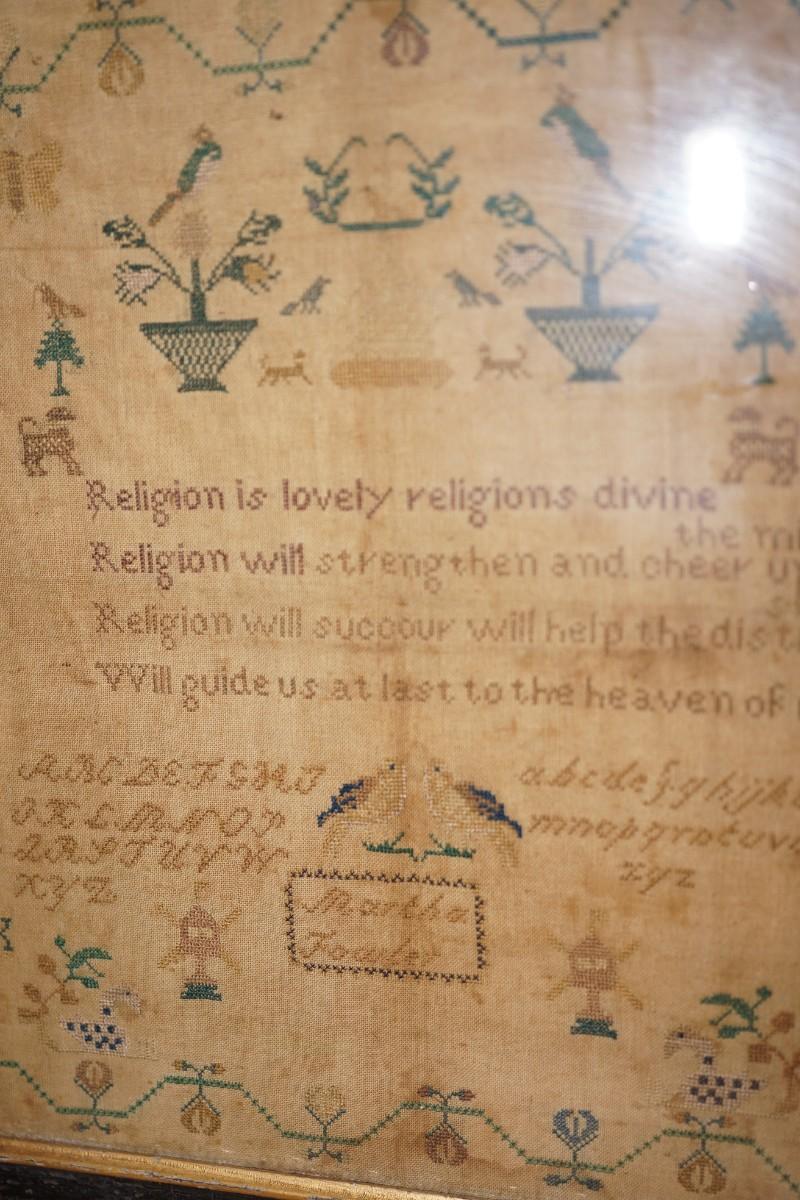 Religion is lovely religions divine
the
Religion will strengthen and cheer
Religion will succour will help the
Will guide us at last to the heaven of
A B C D E F G H I
J K L M N O P
Q R S T U V W
X Y Z
a b c d e f g h i j k
m n o p q r s t u v
x y z
Martha
Fowler